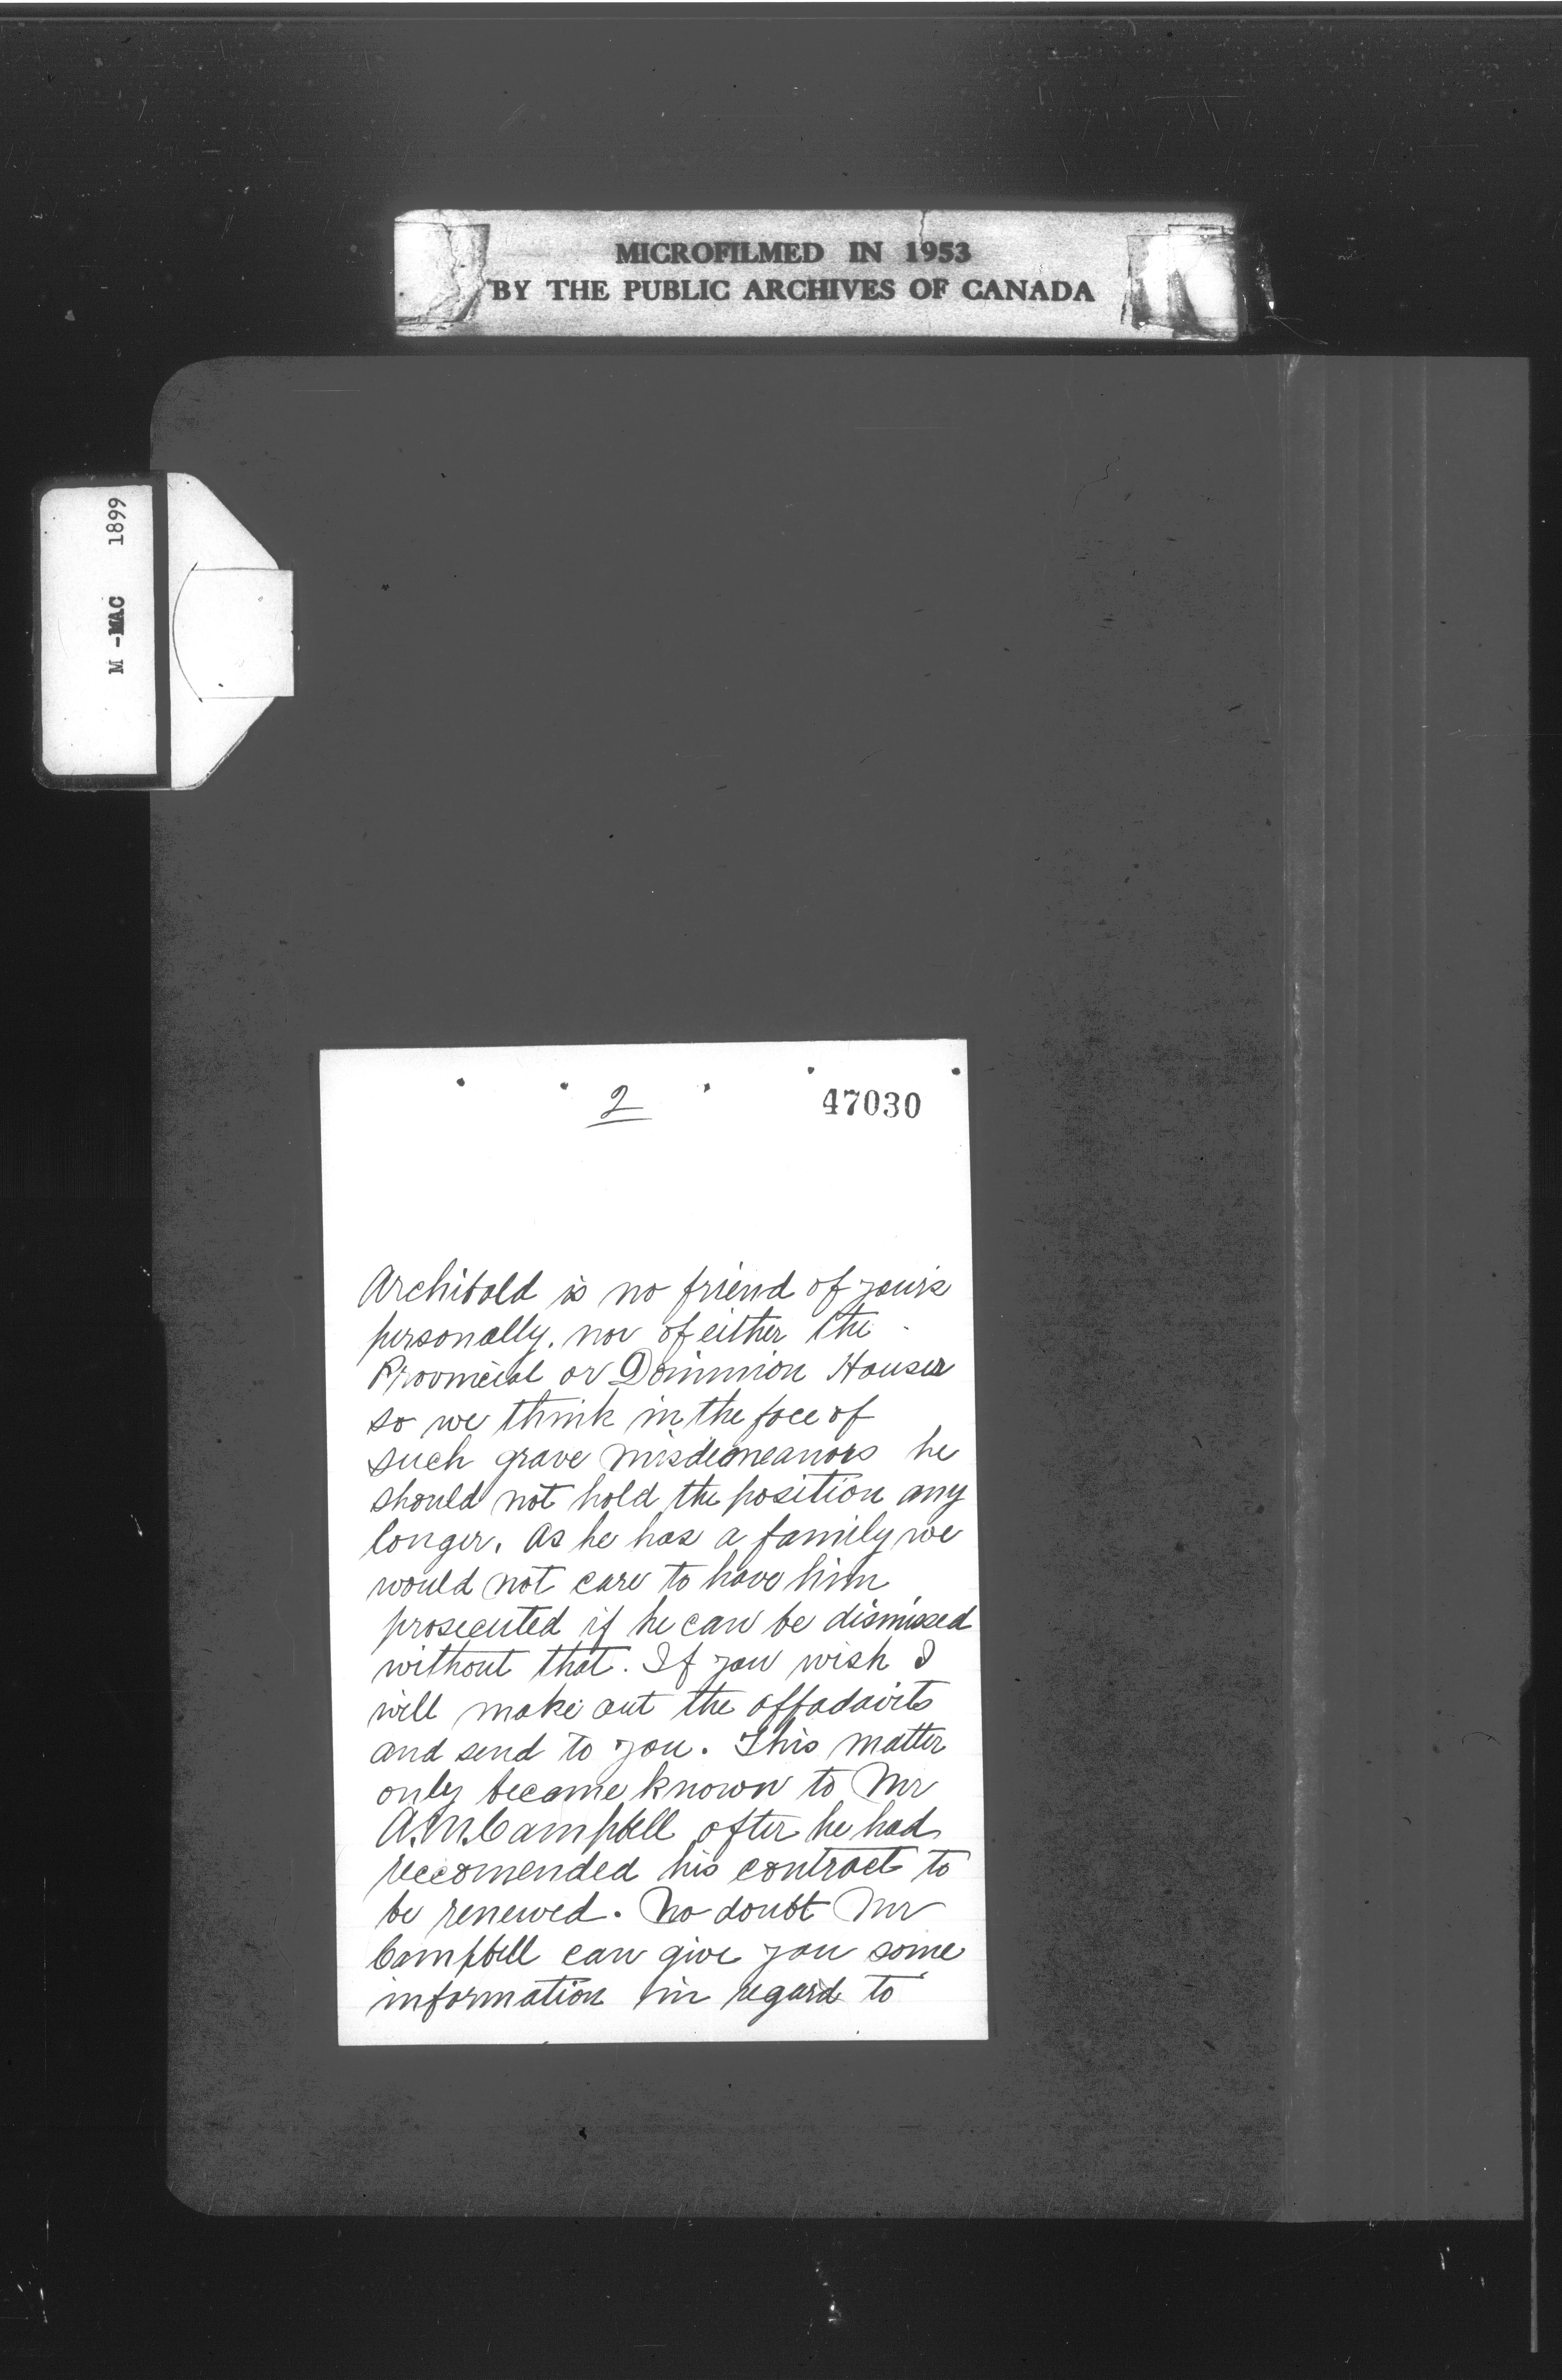 MICROFILMED IN 1953
BY THE PUBLIC ARCHIVES OF CANADA
M -MAC 1899
2
47030
Archibald is no friend of your's
personally, nor of either the
Provincial or Dominion Houses
so we think in the face of
such grave misdemeanors he
should not hold the position any
longer. As he has a family we
would not care to have him
prosecuted if he can be dismissed
without that. If you wish I
will make out the affadavits
and send to you. This matter
only became known to Mr
A.M. Campbell after he had
reccomended his contract to
be renewed. No doubt Mr
Campbell can give you some
information in regard to